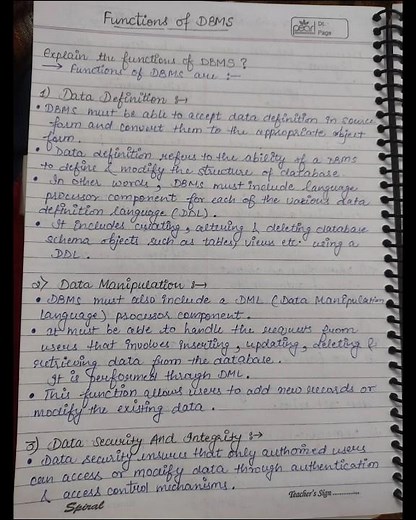 Functions of DBMS
pearl
Dt.
Page
Explain the functions of DBMS ?
→ Functions of DBMS are :-
1) Data Definition :→
• DBMS must be able to accept data definition in source
form and convert them to the appropriate object
form.
• Data definition refers to the ability of a DBMS
to define & modify the structure of database.
• In other words, DBMS must include language
processor component for each of the various data
definition language (DDL).
• It includes creating, altering & deleting database
schema objects such as tables, views etc. using a
DDL.
2) Data Manipulation :→
• DBMS must also include a DML (Data Manipulation
Language) processor component.
• It must be able to handle the requests from
users that involves inserting, updating, deleting &
retrieving data from the database.
It is performed through DML.
• This function allows users to add new records or
modify the existing data.
3) Data Security And Integrity :→
• Data security ensures that only authorized users
can access or modify data through authentication
& access control mechanisms.
Spiral
Teacher's Sign..............